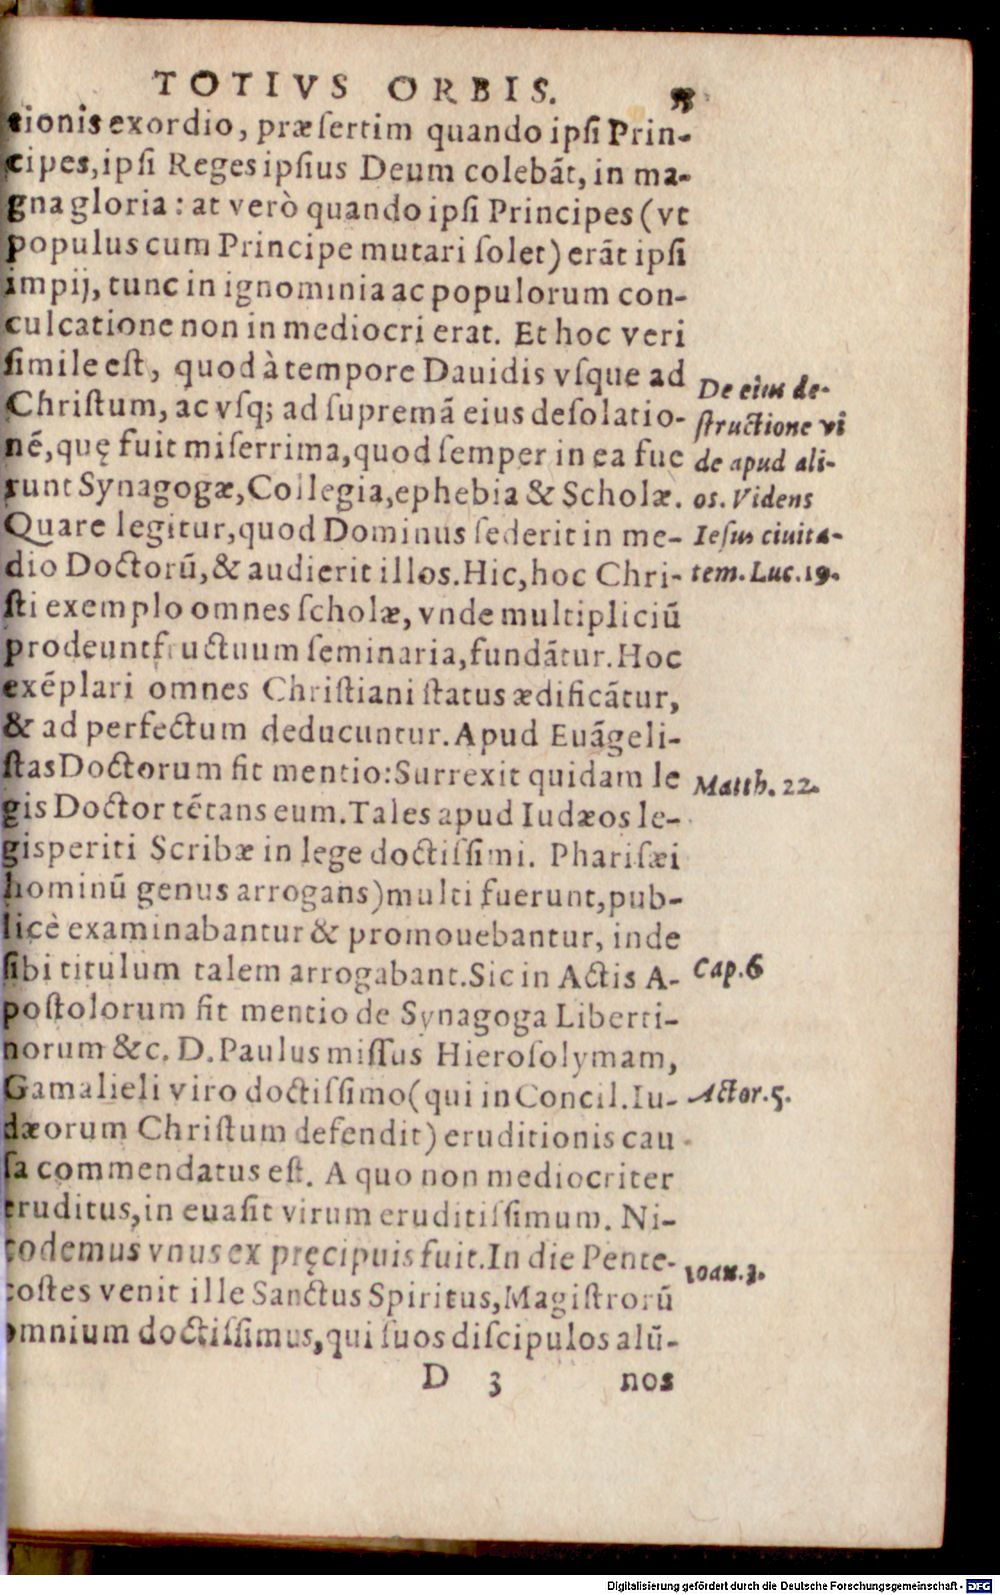 TOTIVS ORBIS.
tionis exordio, præsertim quando ipſi Prin-
cipes, ipſi Reges ipſius Deum colebāt, in ma-
gna gloria: at verò quando ipſi Principes (vt
populus cum Principe mutari ſolet) erāt ipſi
impij, tunc in ignominia ac populorum con-
culcatione non in mediocri erat. Et hoc veri
ſimile eſt, quod à tempore Dauidis vſque ad
Chriſtum, ac vſq; ad ſupremā eius deſolatio-
nē, quę fuit miſerrima, quod ſemper in ea fue
runt Synagogæ, Collegia, ephebia & Scholæ.
Quare legitur, quod Dominus ſederit in me-
dio Doctorū, & audierit illos. Hic, hoc Chri-
ſti exemplo omnes ſcholæ, vnde multipliciū
prodeunt fructuum ſeminaria, fundātur. Hoc
exēplari omnes Chriſtiani ſtatus ædificātur,
& ad perfectum deducuntur. Apud Euāgeli-
ſtas Doctorum fit mentio: Surrexit quidam le
gis Doctor tētans eum. Tales apud Iudæos le-
gisperiti Scribæ in lege doctiſſimi. Phariſæi
hominū genus arrogans) multi fuerunt, pub-
licè examinabantur & promouebantur, inde
ſibi titulum talem arrogabant. Sic in Actis A-
poſtolorum fit mentio de Synagoga Liberti-
norum &c. D. Paulus miſſus Hieroſolymam,
Gamalieli viro doctiſſimo (qui in Concil. Iu-
dæorum Chriſtum defendit) eruditionis cau-
ſa commendatus eſt. A quo non mediocriter
eruditus, in euaſit virum eruditiſſimum. Ni-
codemus vnus ex pręcipuis fuit. In die Pente-
coſtes venit ille Sanctus Spiritus, Magiſtrorū
omnium doctiſſimus, qui ſuos diſcipulos alū-
D 3 nos
De eius de-
ſtructione vi
de apud ali-
os. Videns
Ieſus ciuita-
tem. Luc. 19.
Matth. 22.
Cap. 6
Actor. 5.
Ioan. 3.
Digitalisierung gefördert durch die Deutsche Forschungsgemeinschaft - DFG